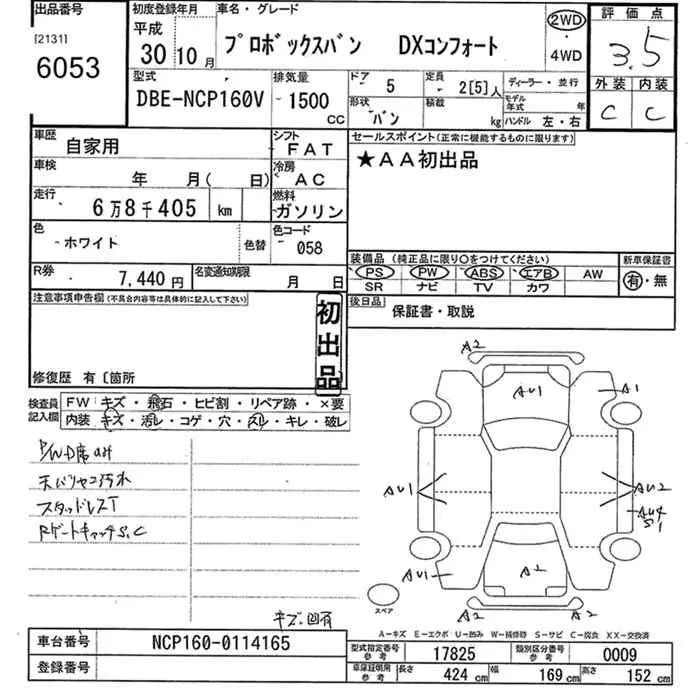 出品番号 初度登録年月 車名・グレード 2WD 評価点
[2131] 平成 ・
6053 30 10月 プロボックスバン DXコンフォート 4WD 3.5
型式 排気量 ドア 5 定員 2[5]人 ディーラー・並行 外装 内装
DBE-NCP160V 1500 CC 形状 バン 積載 kg モデル年式 年 C C
ハンドル 左・右
車歴 自家用 シフト FAT セールスポイント(正常に機能するものに限ります)
車検 年 月( 日) 冷房 AC ★AA初出品
走行 6万8千405 km 燃料 ガソリン
色 ホワイト 色替 色コード 058
装備品(純正品に限り○をつけてください) 新車保証書
R券 7,440円 名変通知期限 月 日 PS PW ABS エアB AW 有・無
SR ナビ TV カワ
注意事項申告欄(不具合内容等は具体的に記入して下さい) 初出品 後日品 保証書・取説
修復歴 有〔箇所
検査員記入欄 FW キズ・飛石・ヒビ割・リペア跡・×要
内装 キズ・汚レ・コゲ・穴・スレ・キレ・破レ
A2
AU1 A1
天バリヤニ汚れ
スタッドレスT
RゲートキャッチS,C
AU1 AU2
AU4
S1
AU1 A2
スペア
A2 A2
キズ・凹有
A-キズ E-エクボ U-凹み W-補修跡 S-サビ C-腐食 XX-交換済
車台番号 NCP160-0114165 型式指定番号 参考 17825 類別区分番号 参考 0009
登録番号 車庫証明用 参考 長さ 424cm 幅 169cm 高さ 152cm